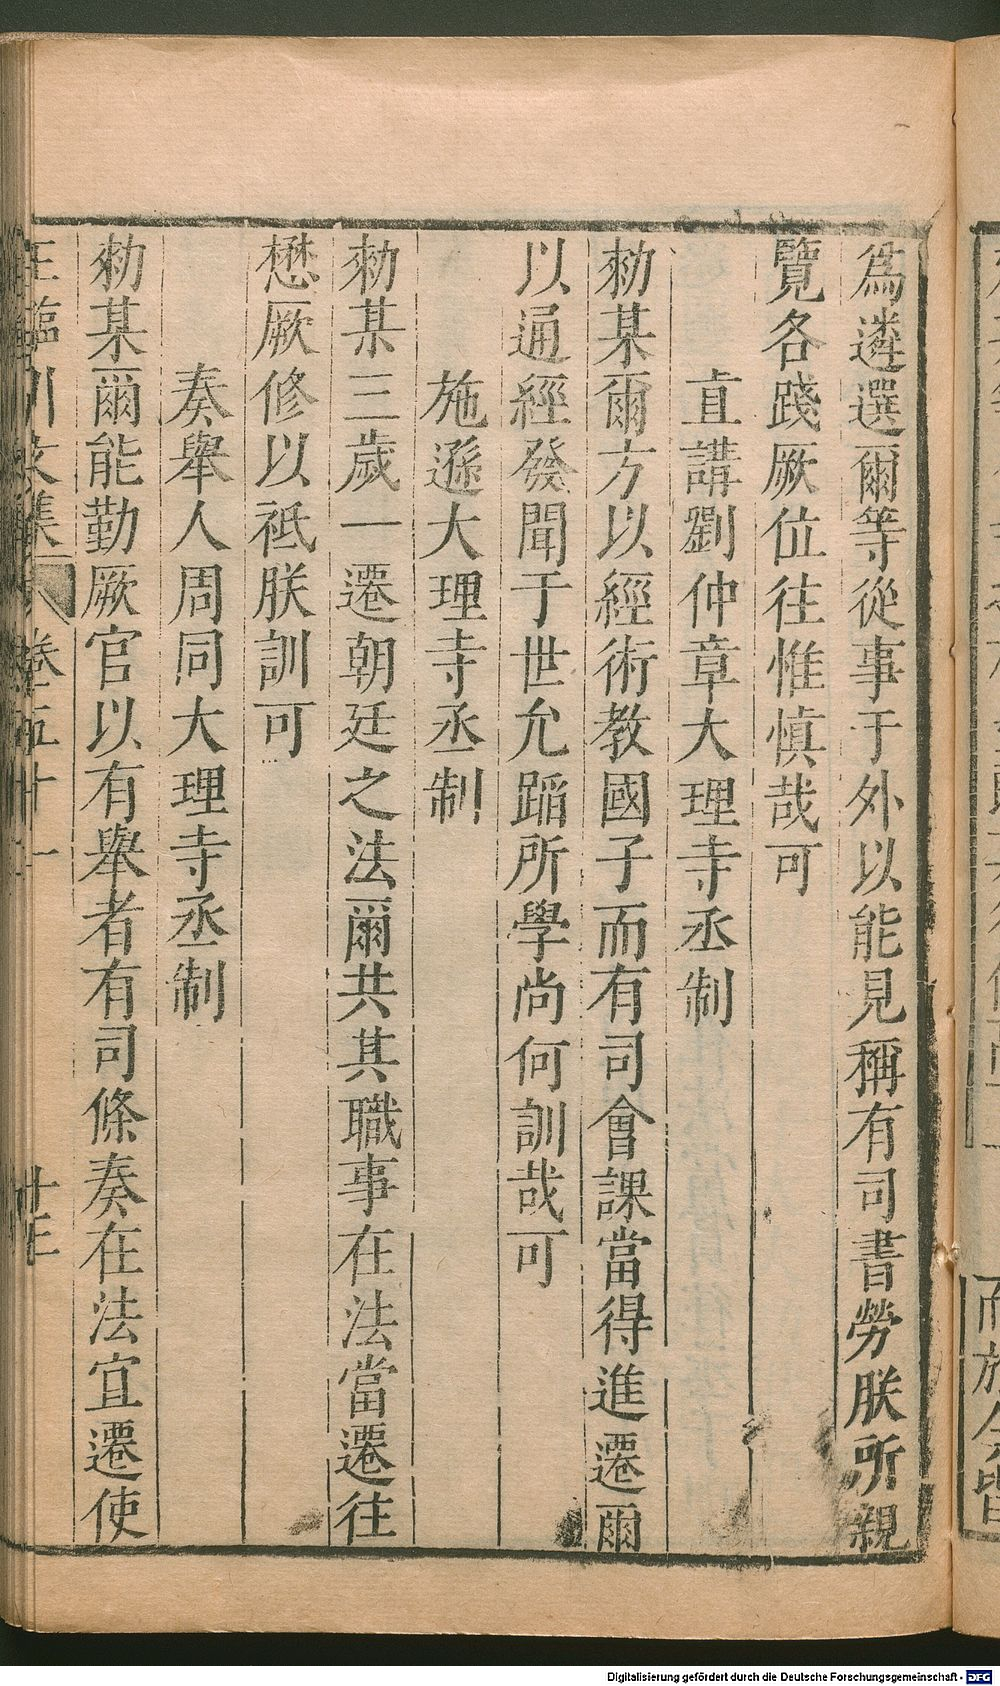 爲遴選爾等從事于外以能見稱有司書勞朕所親
覽各踐厥位往惟慎哉可
直講劉仲章大理寺丞制
勑某爾方以經術教國子而有司會課當得進遷爾
以通經發聞于世允蹈所學尚何訓哉可
施遜大理寺丞制
勑某三歲一遷朝廷之法爾共其職事在法當遷往
懋厥修以祗朕訓可
奏舉人周同大理寺丞制
勑某爾能勤厥官以有舉者有司條奏在法宜遷使
王臨川文集 卷五十一
Digitalisierung gefördert durch die Deutsche Forschungsgemeinschaft - DFG